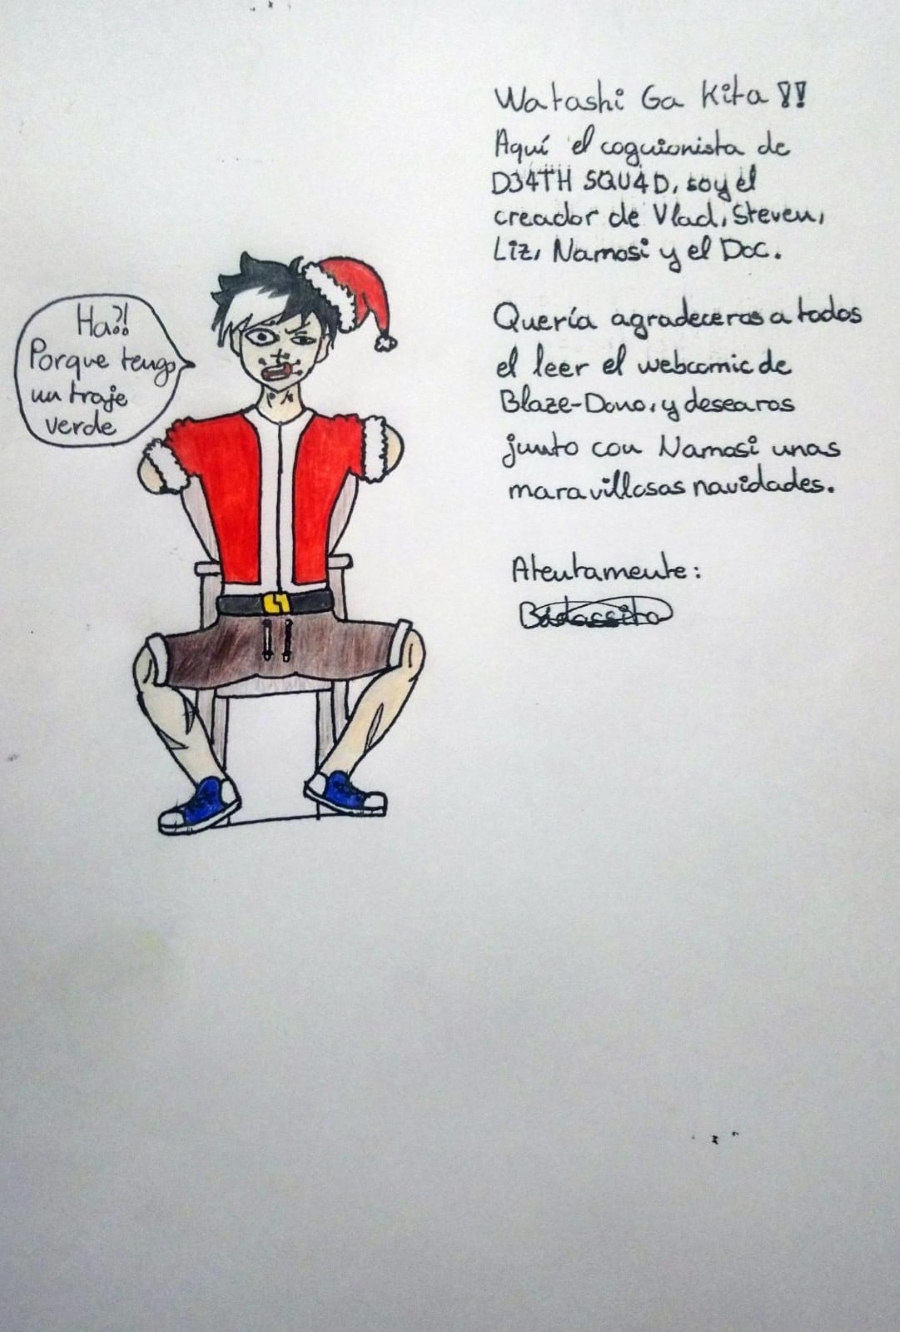 Ha?!
Porque tengo
un traje
verde
Watashi Ga Kita !!
Aquí el coguionista de
D34TH SQU4D, soy el
creador de Vlad, Steven,
Liz, Namosi y el Doc.
Quería agradeceros a todos
el leer el webcomic de
Blaze-Dono, y desearos
junto con Namosi unas
maravillosas navidades.
Atentamente:
Badassito